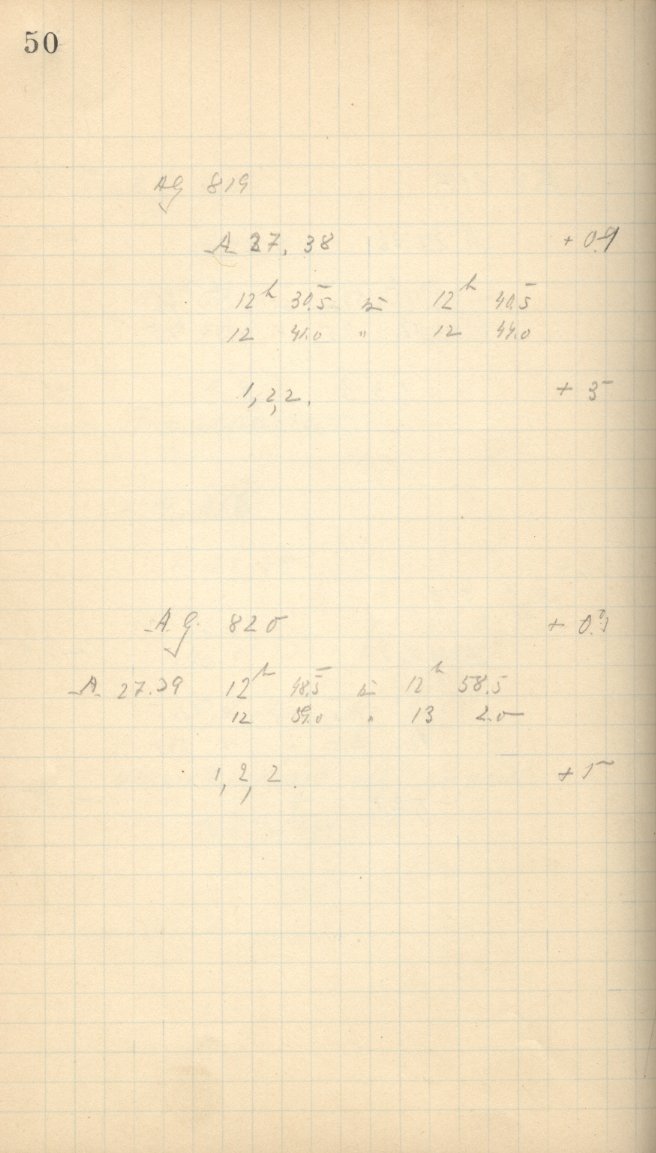 50
AG 819
A 27.38 + 0.9
12h 30.5 to 12h 40.5
12 41.0 " 12 44.0
1, 2, 2. + 5
A.G. 820 + 0.9
A 27.39 12h 48.5 to 12h 58.5
12 59.0 " 13 2.0
1, 2, 2. + 5